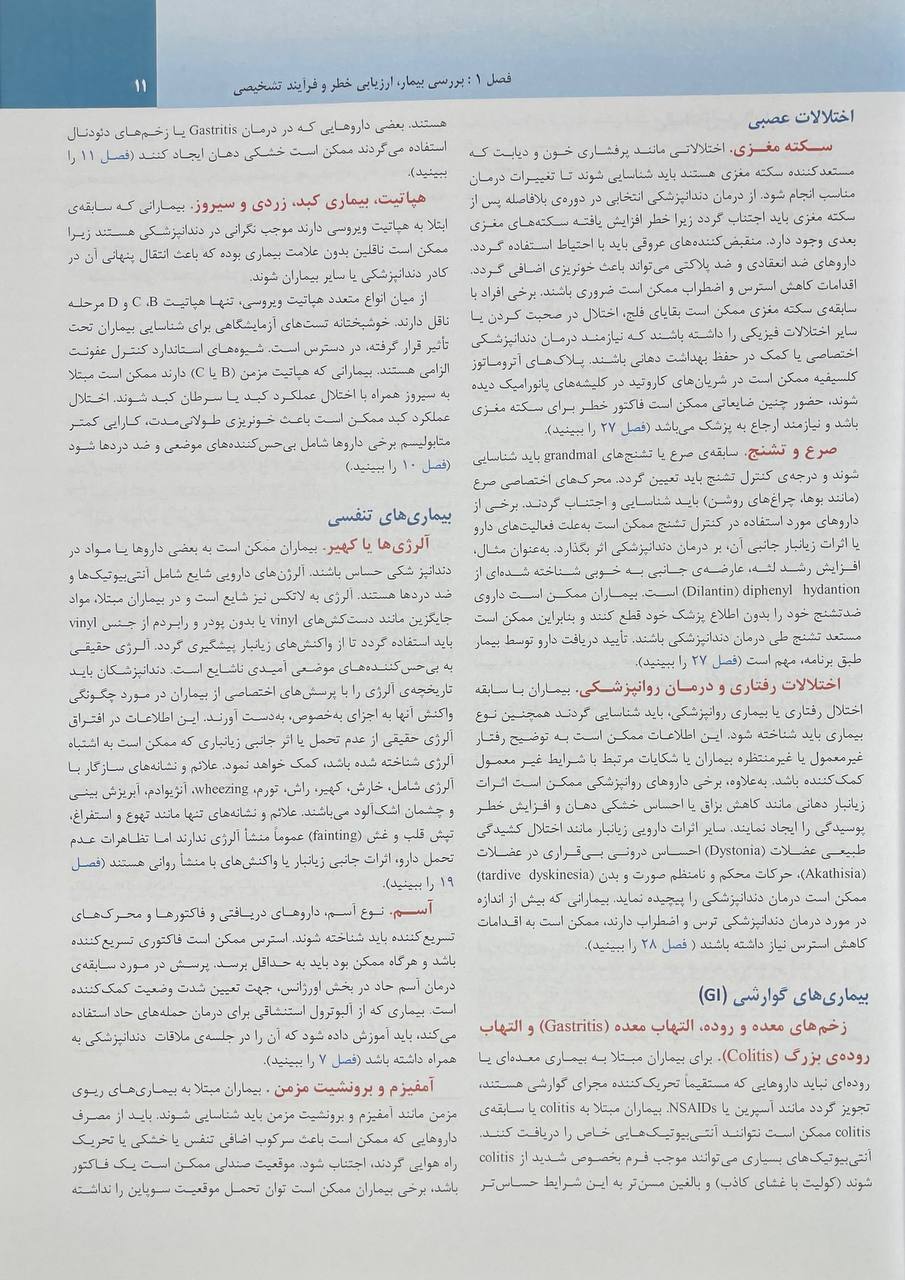 فصل ۱ : بررسی بیمار، ارزیابی خطر و فرآیند تشخیصی
۱۱
اختلالات عصبی
سکته مغزی. اختلالاتی مانند پرفشاری خون و دیابت که
مستعدکننده سکته مغزی هستند باید شناسایی شوند تا تغییرات درمان
مناسب انجام شود. از درمان دندانپزشکی انتخابی در دوره‌ی بلافاصله پس از
سکته مغزی باید اجتناب گردد زیرا خطر افزایش یافته سکته‌های مغزی
بعدی وجود دارد. منقبض‌کننده‌های عروقی باید با احتیاط استفاده گردد.
داروهای ضد انعقادی و ضد پلاکتی می‌تواند باعث خونریزی اضافی گردد.
اقدامات کاهش استرس و اضطراب ممکن است ضروری باشند. برخی افراد با
سابقه‌ی سکته مغزی ممکن است بقایای فلج، اختلال در صحبت کردن یا
سایر اختلالات فیزیکی را داشته باشند که نیازمند درمان دندانپزشکی
اختصاصی یا کمک در حفظ بهداشت دهانی باشند. پلاک‌های آتروماتوز
کلسیفیه ممکن است در شریان‌های کاروتید در کلیشه‌های پانورامیک دیده
شوند، حضور چنین ضایعاتی ممکن است فاکتور خطر برای سکته مغزی
باشد و نیازمند ارجاع به پزشک می‌باشد (فصل ۲۷ را ببینید).
صرع و تشنج. سابقه‌ی صرع یا تشنج‌های grandmal باید شناسایی
شوند و درجه‌ی کنترل تشنج باید تعیین گردد. محرک‌های اختصاصی صرع
(مانند بوها، چراغ‌های روشن) باید شناسایی و اجتناب گردند. برخی از
داروهای مورد استفاده در کنترل تشنج ممکن است به‌علت فعالیت‌های دارو
یا اثرات زیانبار جانبی آن، بر درمان دندانپزشکی اثر بگذارد. به‌عنوان مثال،
افزایش رشد لثه، عارضه‌ی جانبی به خوبی شناخته شده‌ای از
diphenyl hydantion (Dilantin) است. بیماران ممکن است داروی
ضدتشنج خود را بدون اطلاع پزشک خود قطع کنند و بنابراین ممکن است
مستعد تشنج طی درمان دندانپزشکی باشند. تأیید دریافت دارو توسط بیمار
طبق برنامه، مهم است (فصل ۲۷ را ببینید).
اختلالات رفتاری و درمان روانپزشکی. بیماران با سابقه
اختلال رفتاری یا بیماری روانپزشکی، باید شناسایی گردند همچنین نوع
بیماری باید شناخته شود. این اطلاعات ممکن است به توضیح رفتار
غیرمعمول یا غیرمنتظره بیماران یا شکایات مرتبط با شرایط غیر معمول
کمک‌کننده باشد. به‌علاوه، برخی داروهای روانپزشکی ممکن است اثرات
زیانبار دهانی مانند کاهش بزاق یا احساس خشکی دهان و افزایش خطر
پوسیدگی را ایجاد نمایند. سایر اثرات دارویی زیانبار مانند اختلال کشیدگی
طبیعی عضلات (Dystonia) احساس درونی بی‌قراری در عضلات
(Akathisia)، حرکات محکم و نامنظم صورت و بدن (tardive dyskinesia)
ممکن است درمان دندانپزشکی را پیچیده نماید. بیمارانی که بیش از اندازه
در مورد درمان دندانپزشکی ترس و اضطراب دارند، ممکن است به اقدامات
کاهش استرس نیاز داشته باشند ( فصل ۲۸ را ببینید).
بیماری‌های گوارشی (GI)
زخم‌های معده و روده، التهاب معده (Gastritis) و التهاب
روده‌ی بزرگ (Colitis). برای بیماران مبتلا به بیماری معده‌ای یا
روده‌ای نباید داروهایی که مستقیماً تحریک‌کننده مجرای گوارشی هستند،
تجویز گردد مانند آسپرین یا NSAIDs. بیماران مبتلا به colitis یا سابقه‌ی
colitis ممکن است نتوانند آنتی‌بیوتیک‌هایی خاص را دریافت کنند.
آنتی‌بیوتیک‌های بسیاری می‌توانند موجب فرم بخصوص شدید از colitis
شوند (کولیت با غشای کاذب) و بالغین مسن‌تر به این شرایط حساس‌تر
هستند. بعضی داروهایی که در درمان Gastritis یا زخم‌های دئودنال
استفاده می‌گردند ممکن است خشکی دهان ایجاد کنند (فصل ۱۱ را
ببینید).
هپاتیت، بیماری کبد، زردی و سیروز. بیمارانی که سابقه‌ی
ابتلا به هپاتیت ویروسی دارند موجب نگرانی در دندانپزشکی هستند زیرا
ممکن است ناقلین بدون علامت بیماری بوده که باعث انتقال پنهانی آن در
کادر دندانپزشکی یا سایر بیماران شوند.
از میان انواع متعدد هپاتیت ویروسی، تنها هپاتیت B، C و D مرحله
ناقل دارند. خوشبختانه تست‌های آزمایشگاهی برای شناسایی بیماران تحت
تأثیر قرار گرفته، در دسترس است. شیوه‌های استاندارد کنترل عفونت
الزامی هستند. بیمارانی که هپاتیت مزمن (B یا C) دارند ممکن است مبتلا
به سیروز همراه با اختلال عملکرد کبد یا سرطان کبد شوند. اختلال
عملکرد کبد ممکن است باعث خونریزی طولانی‌مدت، کارایی کمتر
متابولیسم برخی داروها شامل بی‌حس‌کننده‌های موضعی و ضد دردها شود
(فصل ۱۰ را ببینید.)
بیماری‌های تنفسی
آلرژی‌ها یا کهیر. بیماران ممکن است به بعضی داروها یا مواد در
دندانپز شکی حساس باشند. آلرژن‌های دارویی شایع شامل آنتی‌بیوتیک‌ها و
ضد دردها هستند. آلرژی به لاتکس نیز شایع است و در بیماران مبتلا، مواد
جایگزین مانند دست‌کش‌های vinyl یا بدون پودر و رابردم از جنس vinyl
باید استفاده گردد تا از واکنش‌های زیانبار پیشگیری گردد. آلرژی حقیقی
به بی‌حس‌کننده‌های موضعی آمیدی ناشایع است. دندانپزشکان باید
تاریخچه‌ی آلرژی را با پرسش‌های اختصاصی از بیماران در مورد چگونگی
واکنش آنها به اجزای به‌خصوص، به‌دست آورند. این اطلاعات در افتراق
آلرژی حقیقی از عدم تحمل یا اثر جانبی زیانباری که ممکن است به اشتباه
آلرژی شناخته شده باشد، کمک خواهد نمود. علائم و نشانه‌های سازگار با
آلرژی شامل، خارش، کهیر، راش، تورم، wheezing، آنژیوادم، آبریزش بینی
و چشمان اشک‌آلود می‌باشند. علائم و نشانه‌های تنها مانند تهوع و استفراغ،
تپش قلب و غش (fainting) عموماً منشأ آلرژی ندارند اما تظاهرات عدم
تحمل دارو، اثرات جانبی زیانبار یا واکنش‌های با منشأ روانی هستند (فصل
۱۹ را ببینید).
آسم. نوع آسم، داروهای دریافتی و فاکتورها و محرک‌های
تسریع‌کننده باید شناخته شوند. استرس ممکن است فاکتوری تسریع‌کننده
باشد و هرگاه ممکن بود باید به حداقل برسد. پرسش در مورد سابقه‌ی
درمان آسم حاد در بخش اورژانس، جهت تعیین شدت وضعیت کمک‌کننده
است. بیماری که از آلبوترول استنشاقی برای درمان حمله‌های حاد استفاده
می‌کند، باید آموزش داده شود که آن را در جلسه‌ی ملاقات دندانپزشکی به
همراه داشته باشد (فصل ۷ را ببینید).
آمفیزم و برونشیت مزمن . بیماران مبتلا به بیماری‌های ریوی
مزمن مانند آمفیزم و برونشیت مزمن باید شناسایی شوند. باید از مصرف
داروهایی که ممکن است باعث سرکوب اضافی تنفس یا خشکی یا تحریک
راه هوایی گردند، اجتناب شود. موقعیت صندلی ممکن است یک فاکتور
باشد، برخی بیماران ممکن است توان تحمل موقعیت سوپاین را نداشته